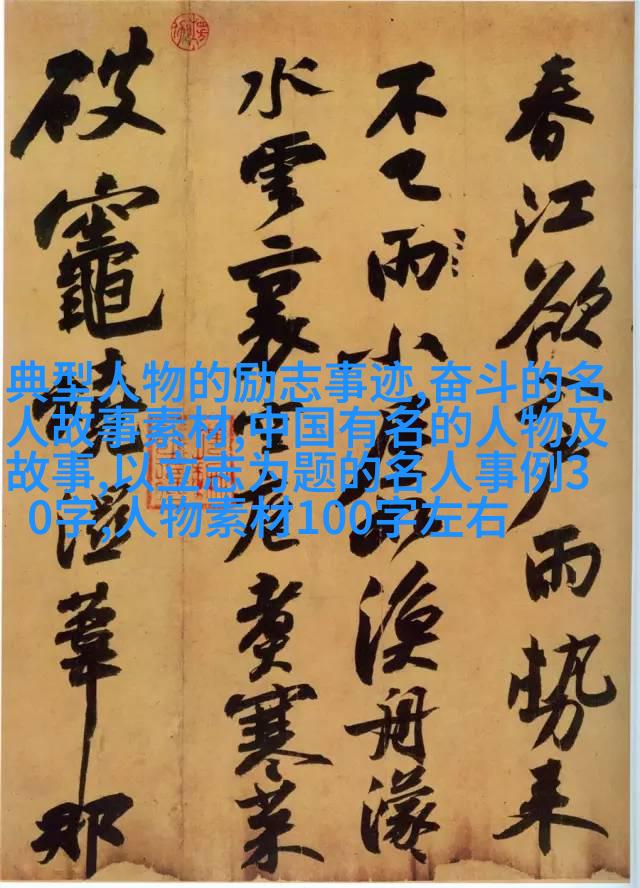 春江欲入戶雨勢来
不已雨小屋如漁舟濛
水雲裏空庖煮寒菜
破竈燒濕葦那
典型人物的励志事迹,奋斗的名
人故事素材,中国有名的人物及
故事,以立志为题的名人事例3
0字,人物素材100字左右